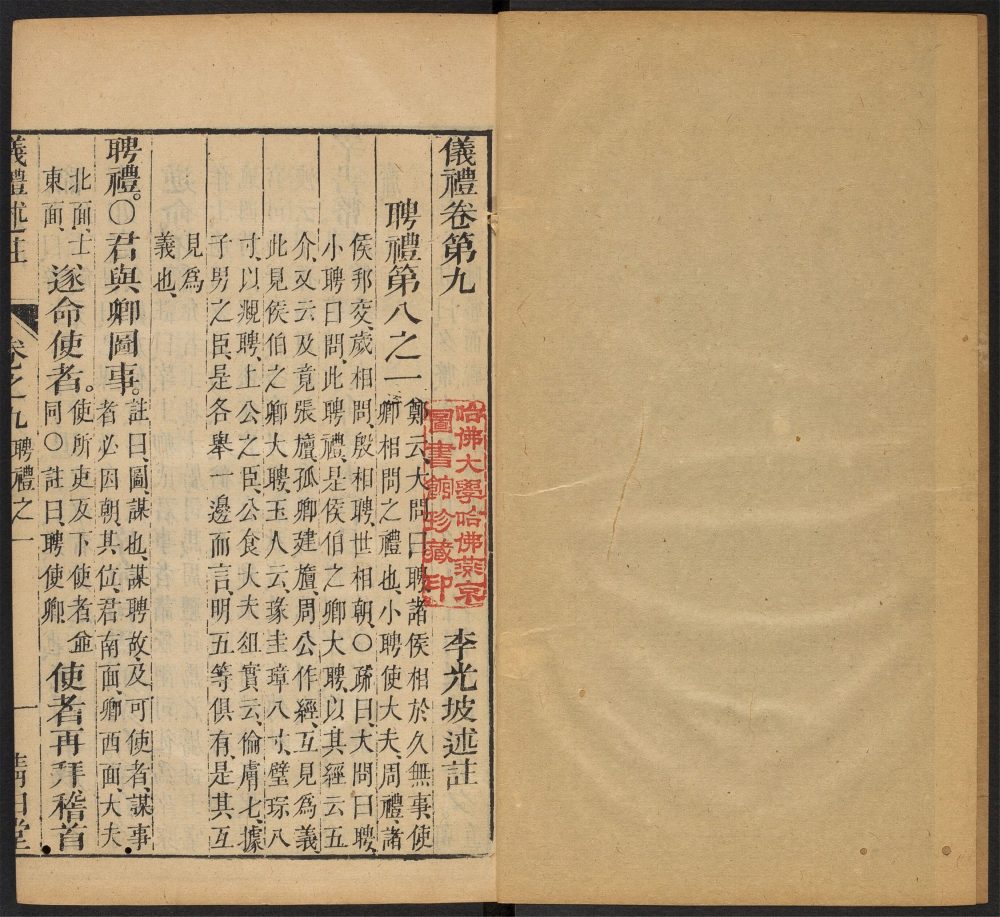 儀禮卷第九
李光坡述註
聘禮第八之一
鄭云、大問曰聘、諸侯相於久無事、使
卿相問之禮也、小聘使大夫、周禮、諸
侯邦交、歲相問、殷相聘、世相朝、○疏曰、大問曰聘、
小聘曰問、此聘禮、是侯伯之卿大聘、以其經云、五
介、又云、及竟張旜、孤卿建旜、周公作經、互見爲義、
此見侯伯之卿大聘、玉人云、瑑圭璋八寸、璧琮八
寸、以覜聘、上公之臣、公食大夫俎實云、倫膚七、據
子男之臣、是各舉一邊而言、明五等俱有、是其互
見爲
義也、
聘禮。○君與卿圖事。
註曰、圖、謀也、謀聘故、及可使者、謀事
者必因朝、其位、君南面、卿西面、大夫
北面、士
東面、
遂命使者。
使所吏反、下使者並
同○註曰、聘使卿、
使者再拜稽首
儀禮述註
卷之九 聘禮之一
一
清白堂
哈佛大學哈佛燕京
圖書館珍藏印